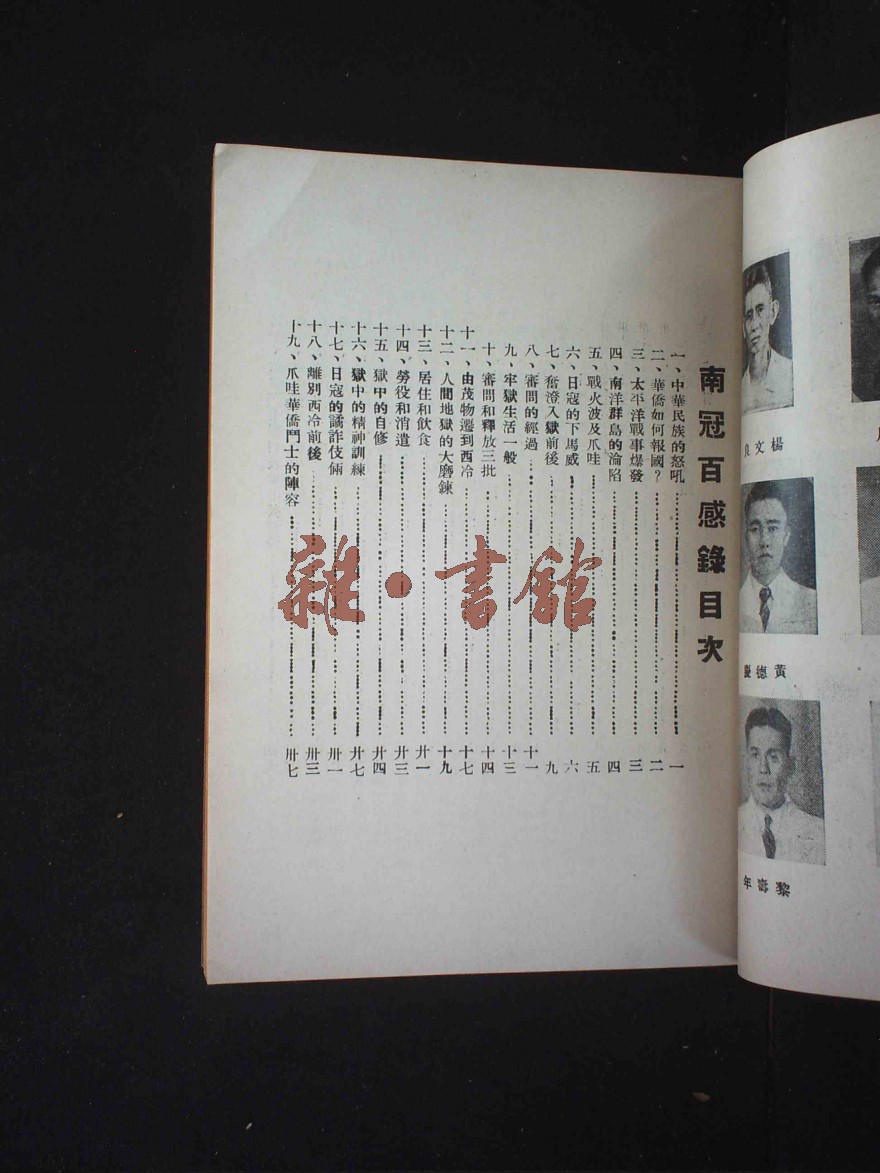 南冠百感錄目次
一、中華民族的怒吼 一
二、華僑如何報國? 二
三、太平洋戰事爆發 三
四、南洋群島的淪陷 四
五、戰火波及爪哇 五
六、日寇的下馬威 六
七、奮潦入獄前後 九
八、審問的經過 十一
九、牢獄生活一般 十三
十、審問和釋放三批 十四
十一、由茂物遷到西冷 十七
十二、人間地獄的大磨鍊 十九
十三、居住和飲食 廿一
十四、勞役和消遣 廿三
十五、獄中的自修 廿四
十六、獄中的精神訓練 廿七
十七、日寇的譎詐伎倆 卅一
十八、離別西冷前後 卅三
十九、爪哇華僑鬥士的陣容 卅七
良文楊
慶德黃
年壽黎
雜·書館